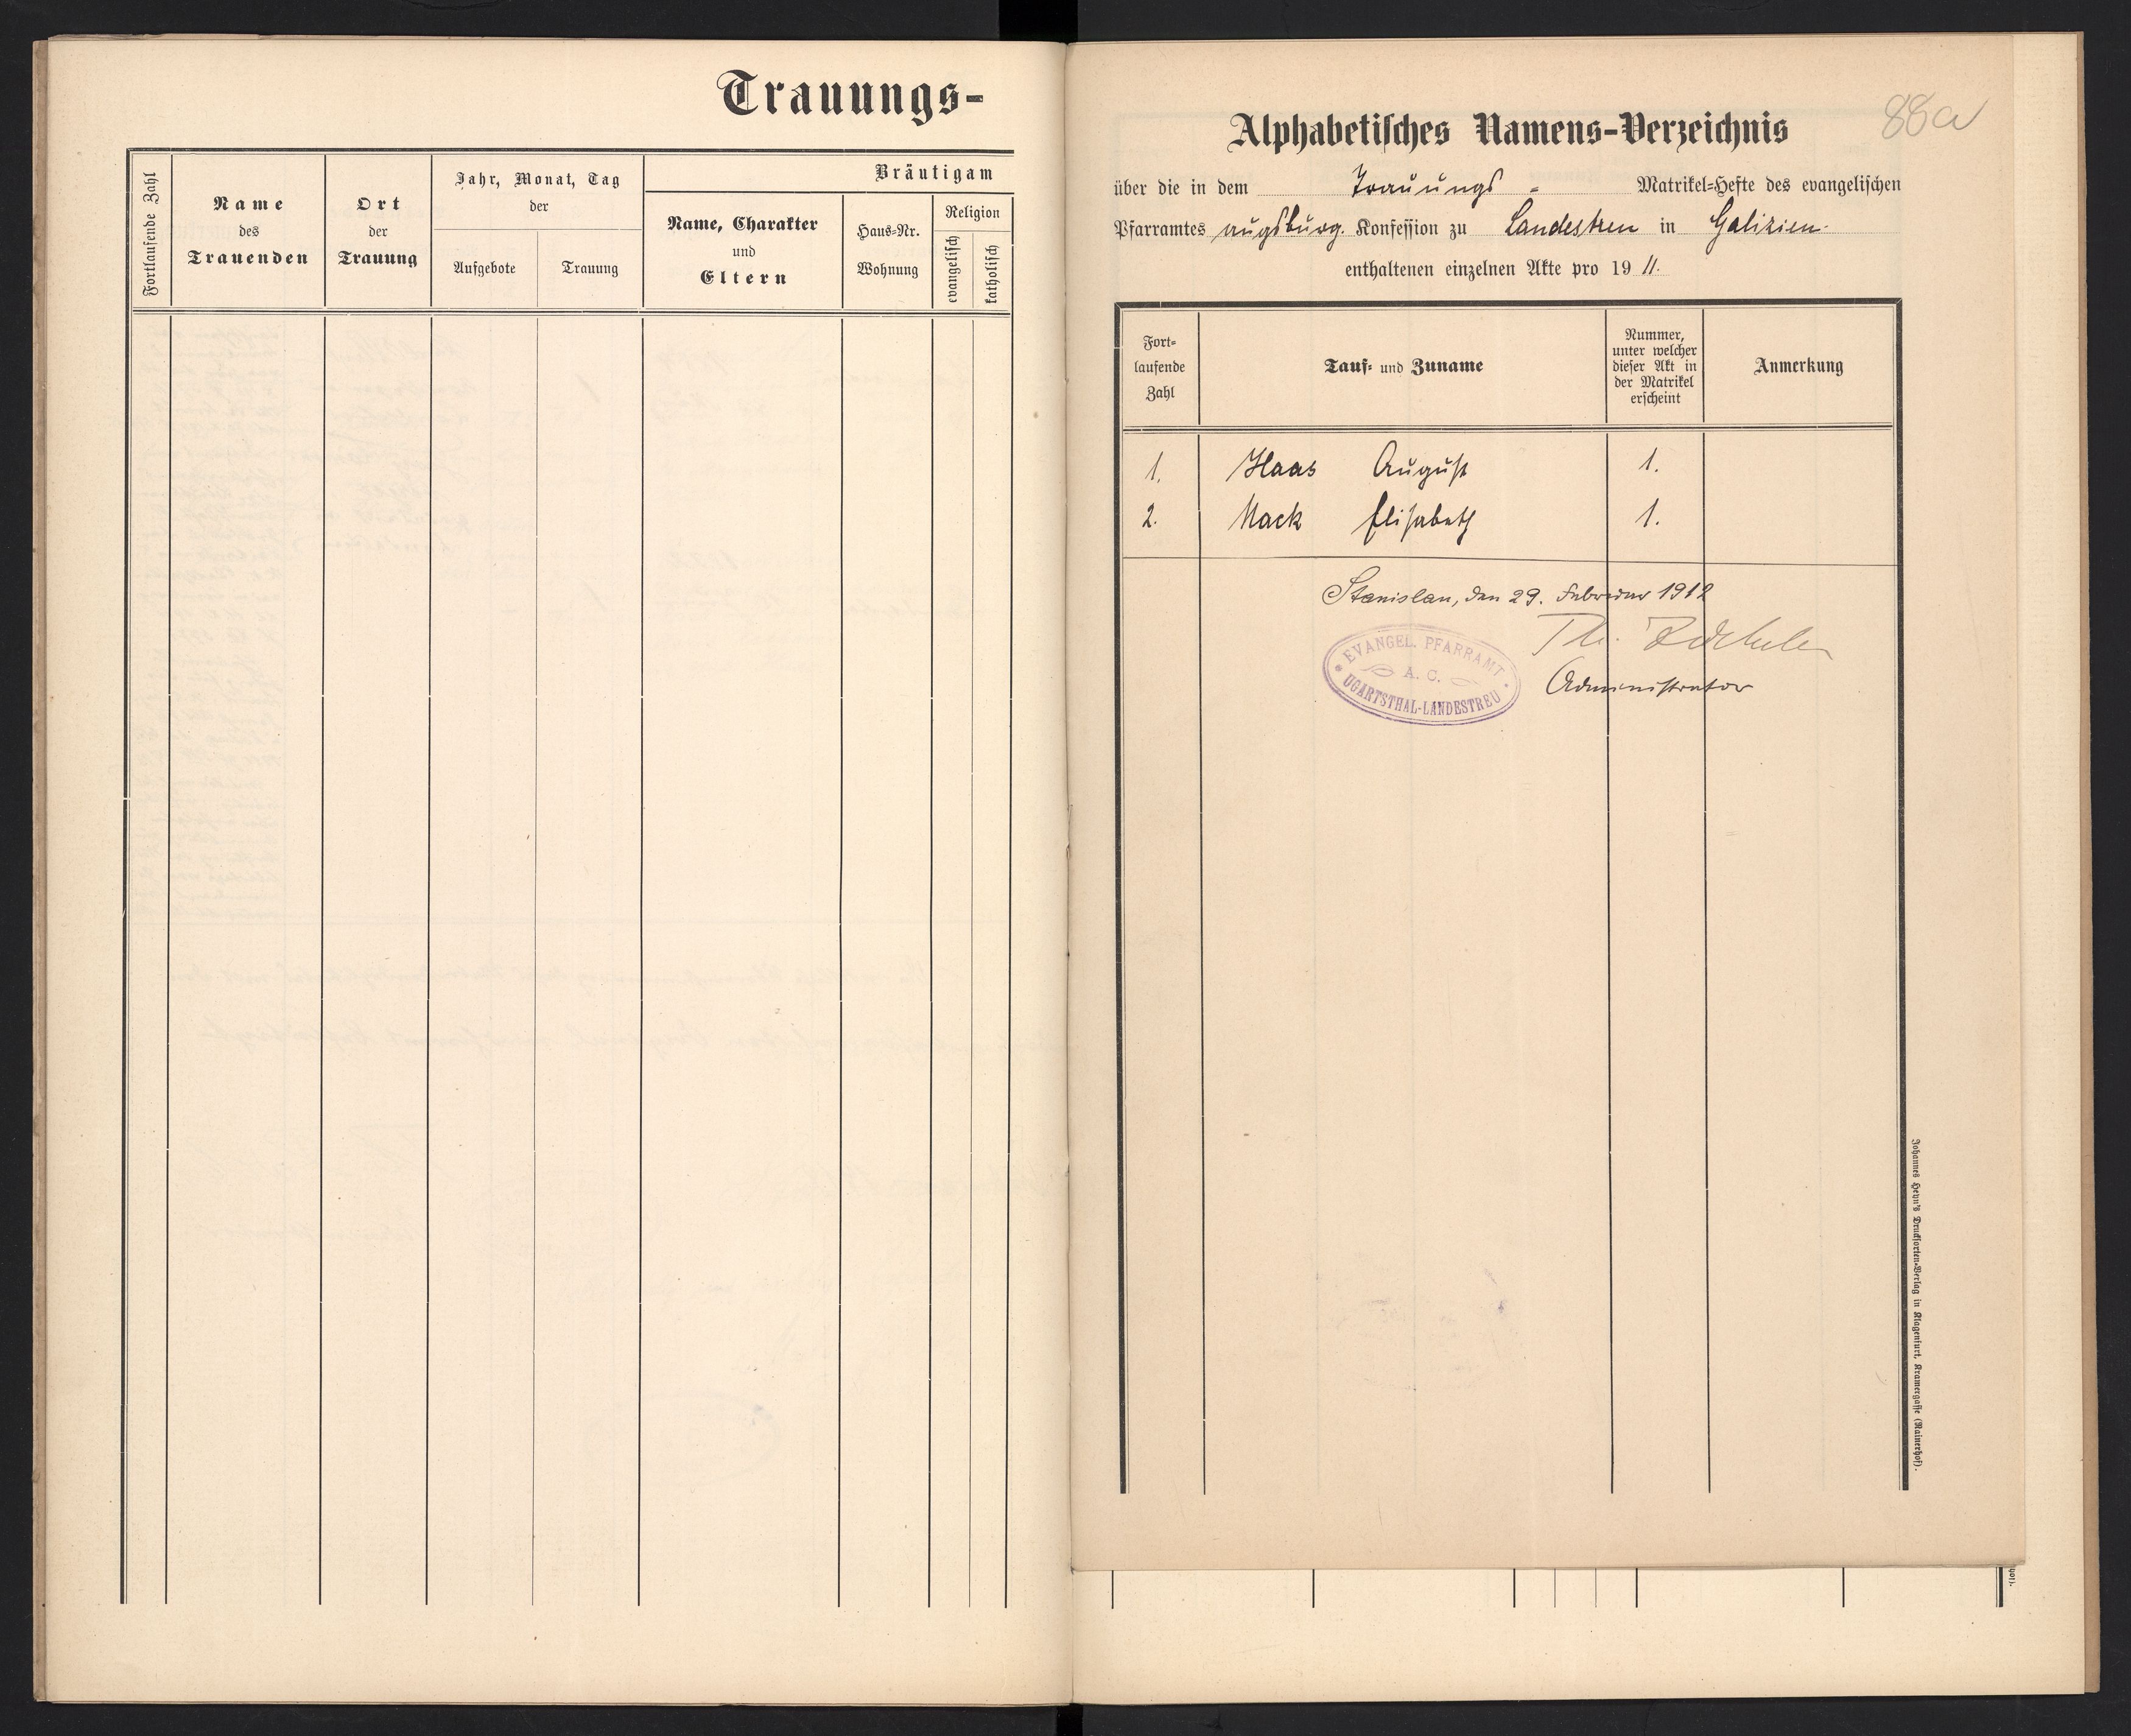 Trauungs-
Fortlaufende Zahl
Name
des
Trauenden
Ort
der
Trauung
Jahr, Monat, Tag
der
Aufgebote
Trauung
Bräutigam
Name, Charakter
und
Eltern
Haus-Nr.
Wohnung
Religion
evangelisch
katholisch
88a
Alphabetisches Namens-Verzeichnis
über die in dem Trauungs - Matrikel-Hefte des evangelischen
Pfarramtes augsburg. Konfession zu Landestreu in Galizien
enthaltenen einzelnen Akte pro 19 11.
Fort-
laufende
Zahl
Tauf- und Zuname
Nummer,
unter welcher
dieser Akt in
der Matrikel
erscheint
Anmerkung
1. Haas August 1.
2. Mack Elisabeth 1.
Stanislau, den 29. Februar 1912
Th.
Administrator
EVANGEL. PFARRAMT
A. C.
UGARTSTHAL-LANDESTREU
Johannes Heyn's Drucksorten-Verlag in Klagenfurt, Kramergasse (Rainerhof).